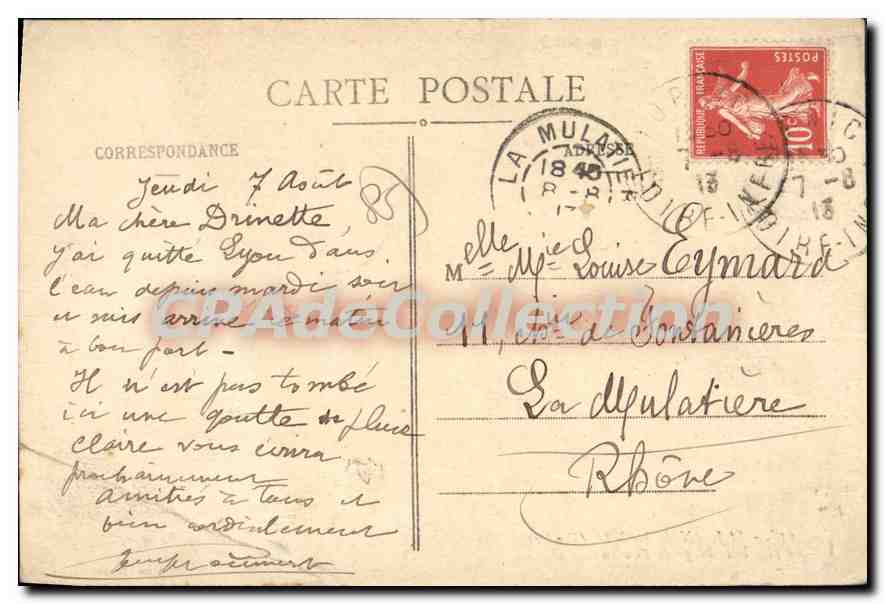 CARTE POSTALE
CORRESPONDANCE
ADRESSE
Jeudi 7 Août
85
Ma chère Drinette
j'ai quitté Lyon dans
l'eau depuis mardi soir
et suis arrivé ce matin
à bon port -
Il n'est pas tombé
ici une goutte de pluie
claire vous écrira
prochainement
amitiés à tous et
bien cordialement
Melle Mie Louise Eymard
11, de Fontanières
La Mulatière
Rhône
REPUBLIQUE FRANÇAISE
POSTES
10c
LA MULATIERE
18 45
8 - 8
7 - 8
13
CPAdeCollection